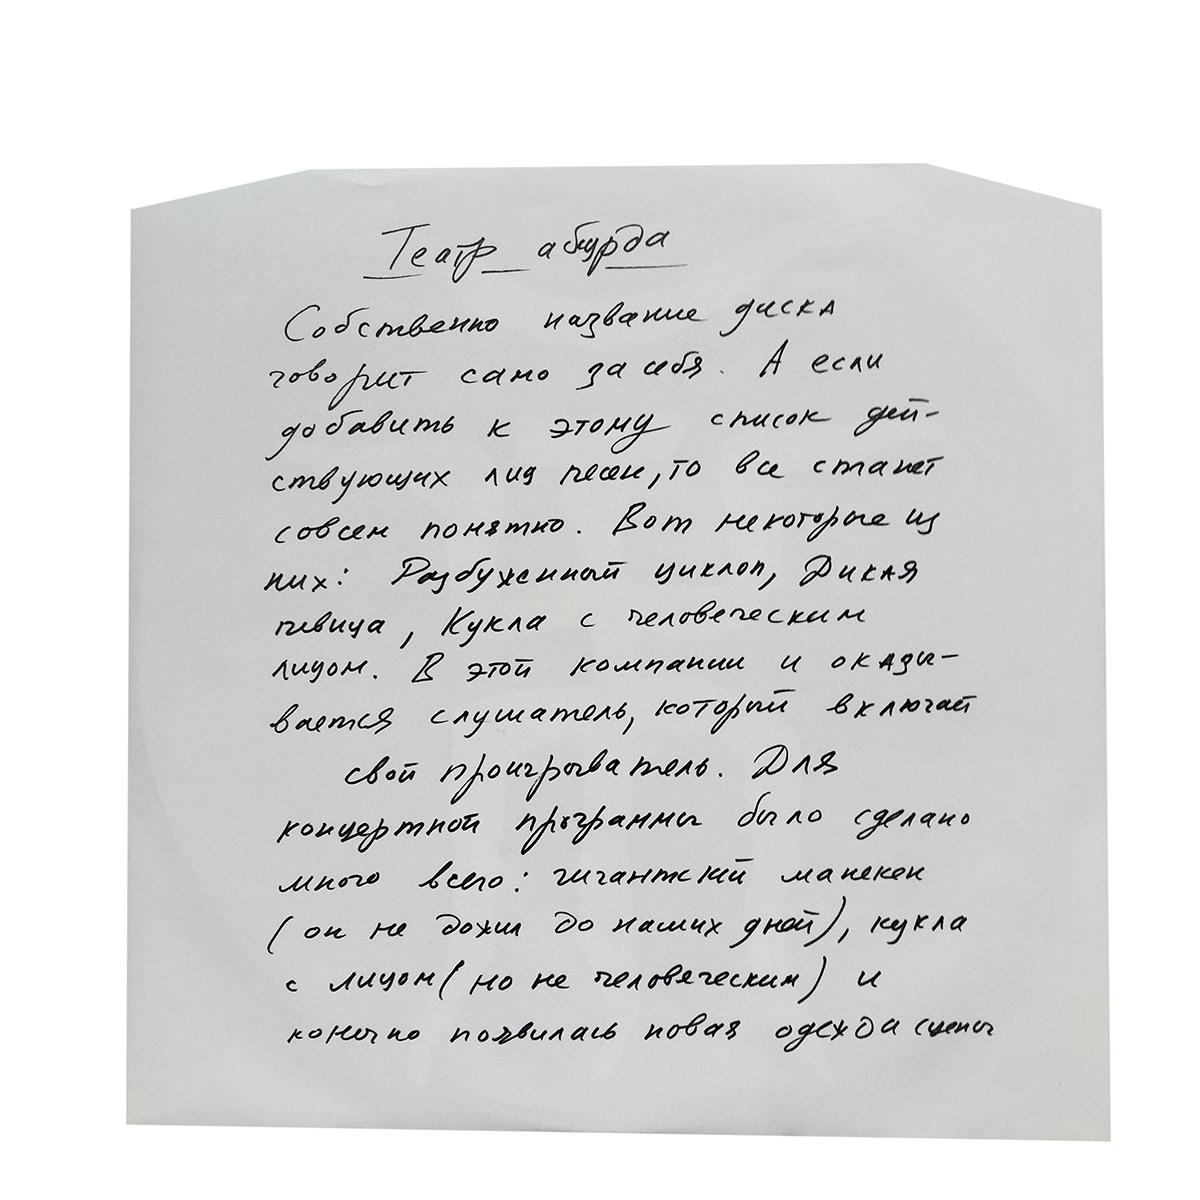 Театр абсурда
Собственно название диска
говорит само за себя. А если
добавить к этому список дей-
ствующих лиц песен, то все станет
совсем понятно. Вот некоторые из
них: Разбуженный циклоп, Дикая
певица, Кукла с человеческим
лицом. В этой компании и оказы-
вается слушатель, который включает
свой проигрыватель. Для
концертной программы было сделано
много всего: гигантский манекен
(он не дожил до наших дней), кукла
с лицом (но не человеческим) и
конечно появилась новая одежда сцены